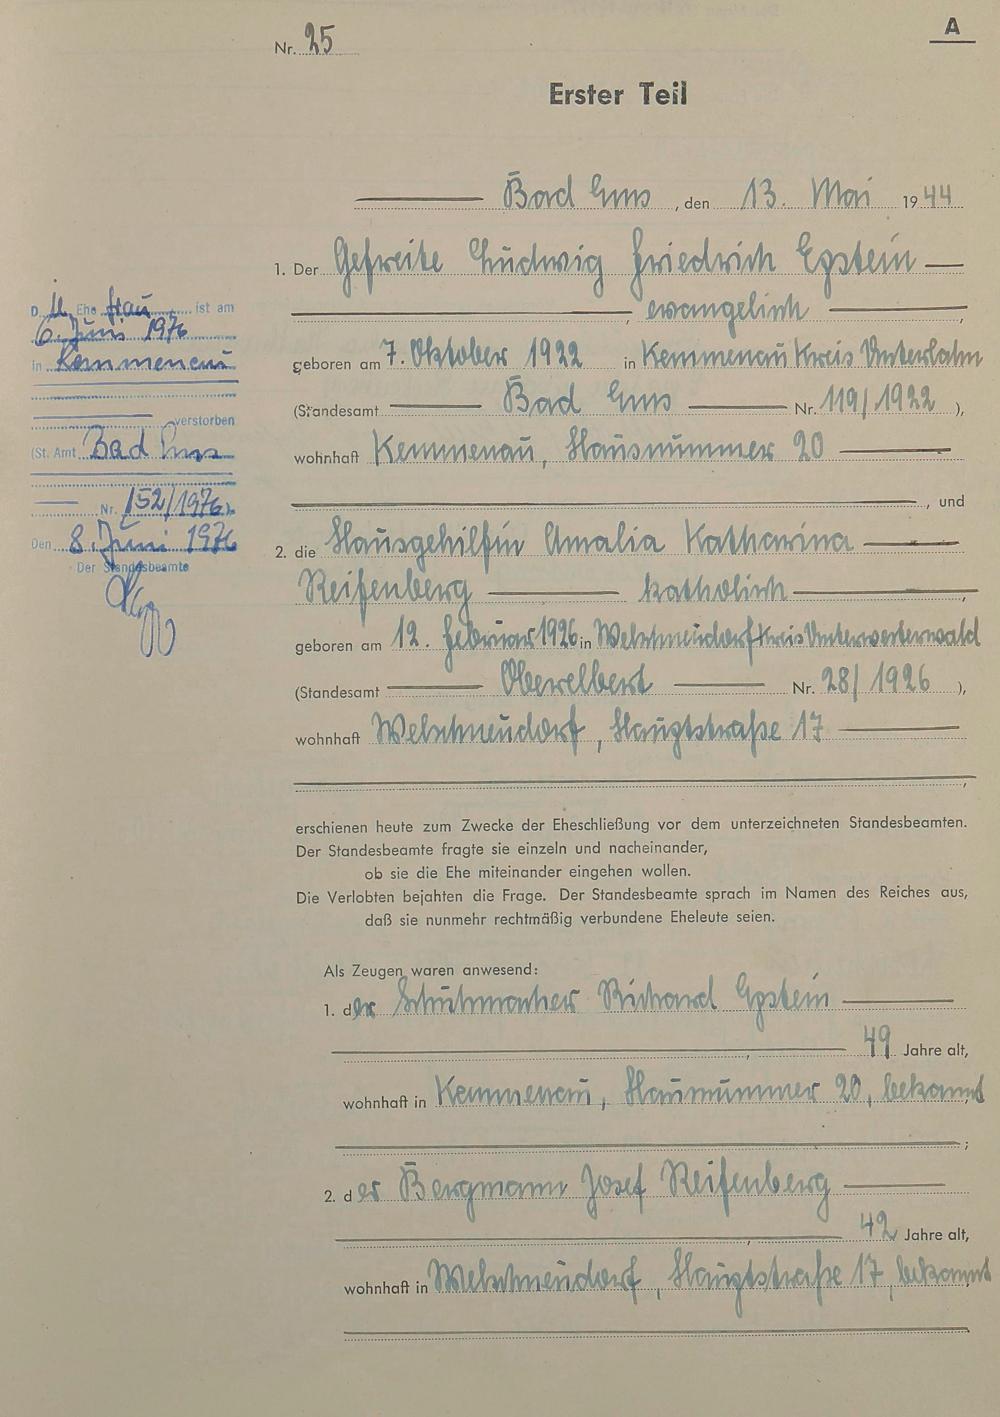 A
Nr. 25
Erster Teil
Bad Ems, den 13. Mai 1944
1. Der Gefreite Ludwig Friedrich Epstein
evangelisch,
geboren am 7. Oktober 1922 in Kemmenau Kreis Unterlahn
(Standesamt Bad Ems Nr. 119/1922),
wohnhaft Kemmenau, Hausnummer 20
, und
2. die Hausgehilfin Amalia Katharina
Reifenberg katholisch,
geboren am 12. Februar 1926 in Welschneudorf Kreis Unterwesterwald
(Standesamt Oberelbert Nr. 28/1926),
wohnhaft Welschneudorf, Hauptstraße 17
erschienen heute zum Zwecke der Eheschließung vor dem unterzeichneten Standesbeamten.
Der Standesbeamte fragte sie einzeln und nacheinander,
ob sie die Ehe miteinander eingehen wollen.
Die Verlobten bejahten die Frage. Der Standesbeamte sprach im Namen des Reiches aus,
daß sie nunmehr rechtmäßig verbundene Eheleute seien.
Als Zeugen waren anwesend:
1. der Schuhmacher Richard Epstein
, 49 Jahre alt,
wohnhaft in Kemmenau, Hausnummer 20, bekannt
;
2. der Bergmann Josef Reifenberg
, 42 Jahre alt,
wohnhaft in Welschneudorf, Hauptstraße 17, bekannt
Die Ehefrau ist am
6. Juni 1976
in Kemmenau
verstorben
(St. Amt Bad Ems
Nr. 152/1976).
Den 8. Juni 1976
Der Standesbeamte